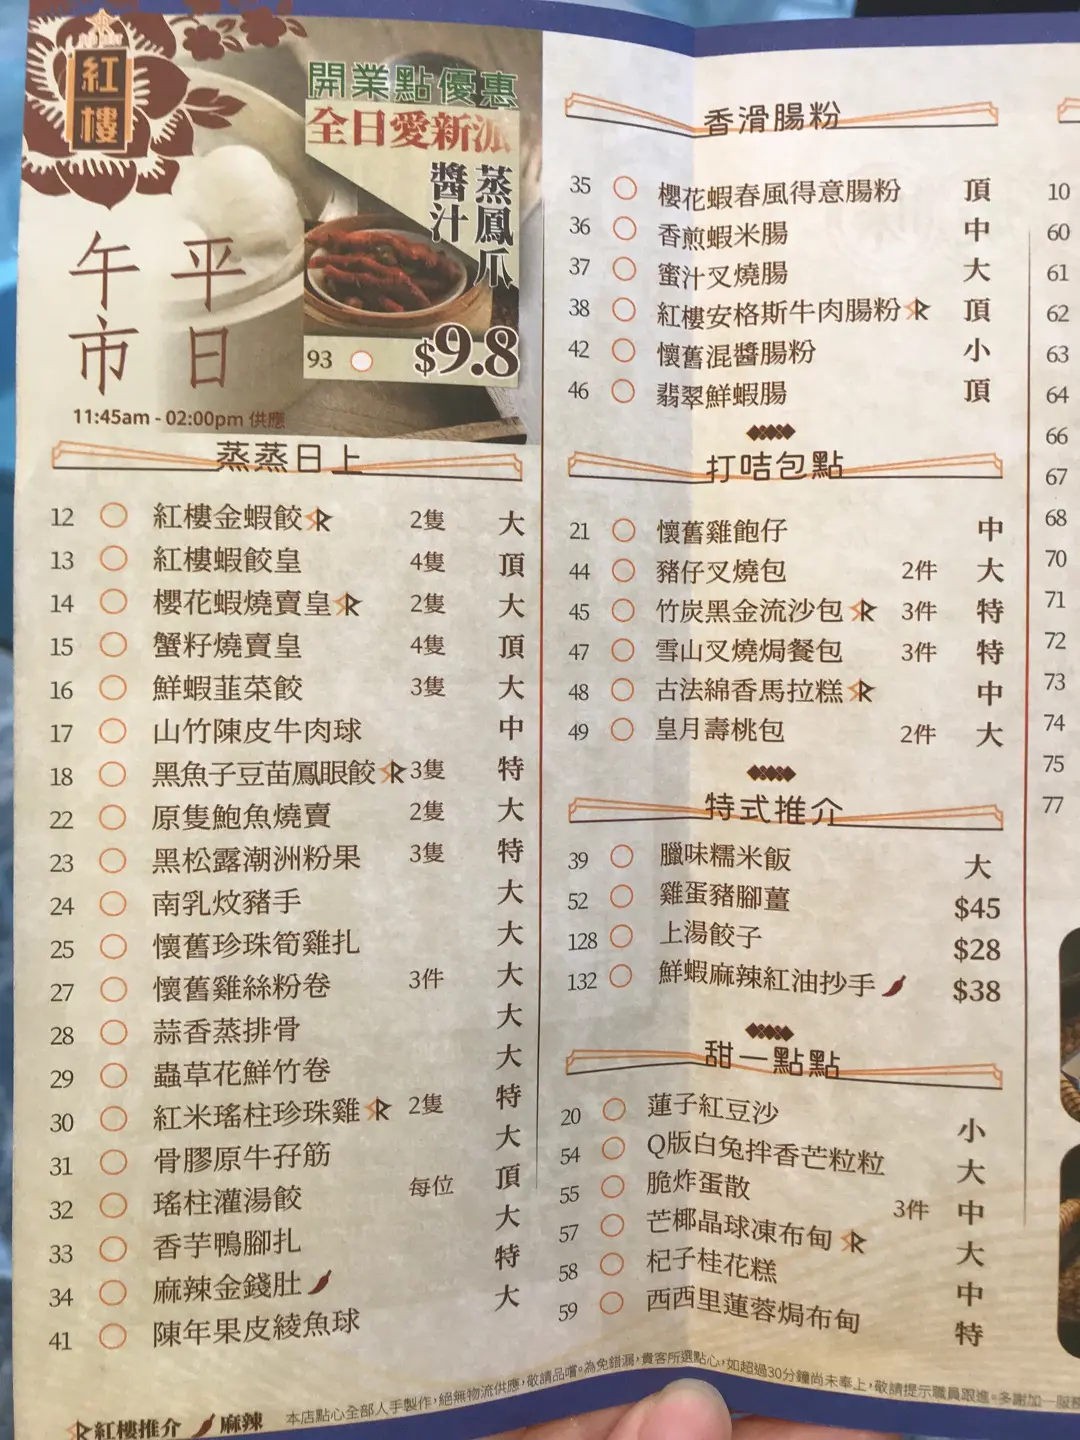 紅樓
開業點優惠
全日愛新派
醬汁
蒸鳳爪
93 $9.8
平日
午市
11:45am - 02:00pm 供應
蒸蒸日上
12 紅樓金蝦餃 2隻 大
13 紅樓蝦餃皇 4隻 頂
14 櫻花蝦燒賣皇 2隻 大
15 蟹籽燒賣皇 4隻 頂
16 鮮蝦韮菜餃 3隻 大
17 山竹陳皮牛肉球 中
18 黑魚子豆苗鳳眼餃 3隻 特
22 原隻鮑魚燒賣 2隻 大
23 黑松露潮洲粉果 3隻 特
24 南乳炆豬手 大
25 懷舊珍珠筍雞扎 大
27 懷舊雞絲粉卷 3件 大
28 蒜香蒸排骨 大
29 蟲草花鮮竹卷 大
30 紅米瑤柱珍珠雞 2隻 特
31 骨膠原牛孖筋 大
32 瑤柱灌湯餃 每位 頂
33 香芋鴨腳扎 大
34 麻辣金錢肚 特
41 陳年果皮綾魚球 大
香滑腸粉
35 櫻花蝦春風得意腸粉 頂
36 香煎蝦米腸 中
37 蜜汁叉燒腸 大
38 紅樓安格斯牛肉腸粉 頂
42 懷舊混醬腸粉 小
46 翡翠鮮蝦腸 頂
打咭包點
21 懷舊雞飽仔 中
44 豬仔叉燒包 2件 大
45 竹炭黑金流沙包 3件 特
47 雪山叉燒焗餐包 3件 特
48 古法綿香馬拉糕 中
49 皇月壽桃包 2件 大
特式推介
39 臘味糯米飯 大
52 雞蛋豬腳薑 $45
128 上湯餃子 $28
132 鮮蝦麻辣紅油抄手 $38
甜一點點
20 蓮子紅豆沙 小
54 Q版白兔拌香芒粒粒 大
55 脆炸蛋散 3件 中
57 芒椰晶球凍布甸 大
58 杞子桂花糕 中
59 西西里蓮蓉焗布甸 特
10
60
61
62
63
64
66
67
68
70
71
72
73
74
75
77
紅樓推介 麻辣 本店點心全部人手製作，絕無物流供應，敬請品嚐。為免錯漏，貴客所選點心，如超過30分鐘尚未奉上，敬請提示職員跟進。多謝加一服務